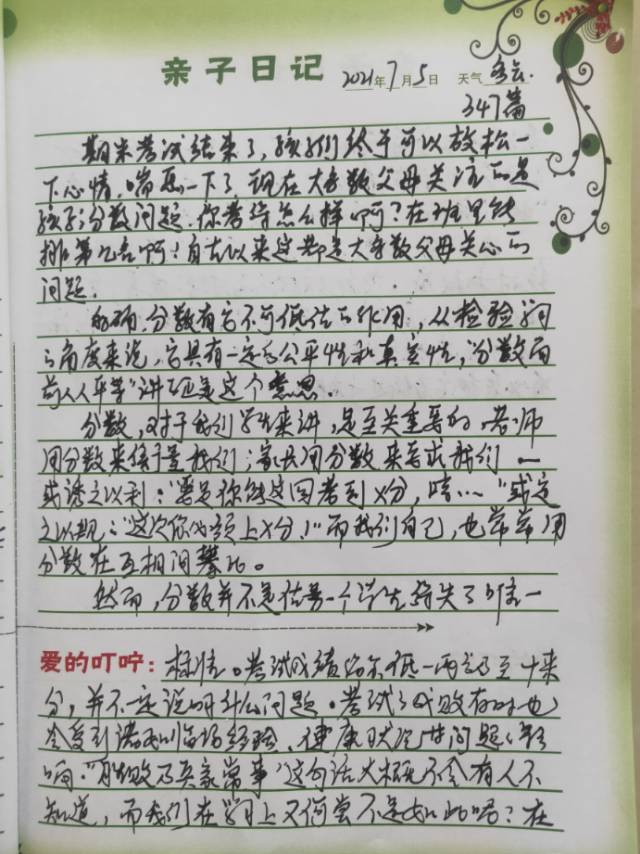 亲子日记 2021年7月5日 天气 多云.
347篇
期末考试结束了,孩子们终于可以放松一
下心情,喘息一下了.现在大多数父母关注的是
孩子分数问题.你考得怎么样啊?在班里能
排第几名啊!自古以来这都是大多数父母关心的
问题.
的确,分数有它不可低估的作用,从检验学习
的角度来说,它具有一定的公平性和真实性,"分数面
前人人平等"讲的就是这个意思.
分数,对于我们学生来讲,是至关重要的.老师
用分数来衡量我们;家长用分数来要求我们——
或诱之以利:"要是你能这回考到X分,嘻…"或定
之以规:"这次你必须上X分!"而我们自己,也常常用
分数在互相间攀比。
然而,分数并不是估量一个学生得失了的唯一
爱的叮咛: 标准。考试成绩偶尔低一两分乃至十来
分,并不一定说明什么问题。考试的成败有时也
会受到诸如临场经验、健康状况等问题的影
响."胜败乃兵家常事"这句话大概不会有人不
知道,而我们在学习上又何尝不是如此呢?在